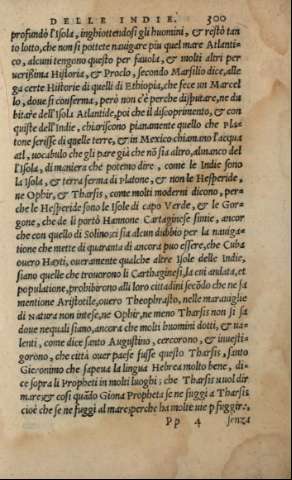 DELLE INDIE. 300
profundò l'Isola, inghiottendosi gli huomini, & restò tan
to lotto, che non si pottete nauigare piu quel mare Atlanti-
co, alcuni tengono questo per fauola, & molti altri per
uerissima Historia, & Proclo, secondo Marsilio dice, alle
ga certe Historie di quelli di Ethiopia, che fece un Marcel
lo, doue si conferma, però non c'è perche disputare, ne du
bitare dell'Isola Atlantide, poi che il discoprimento, & con
quiste dell'Indie, chiariscono pianamente quello che Pla
tone scrisse di quelle terre, & in Mexico chiamano l'acqua
atl, uocabulo che gli pare già che nō sia altro, almanco del
l'Isola, di maniera che potemo dire, come le Indie sono
la Isola, & terra ferma di Platone, & non le Hesperide,
ne Ophir, & Tharsis, come molti moderni dicono, per-
che le Hesperide sono le Isole di capo Verde, & le Gor-
gone, che de li portò Hannone Cartaginese simie, ancor
che con quello di Solino ci sia alcun dubbio per la nauiga-
tione che mette di quaranta dì ancora puo essere, che Cuba
ouero Hayti, oueramente qualche altre Isole delle Indie,
siano quelle che trouorono li Carthaginesi, la cui andata, et
populatione, prohibirono alli loro cittadini secōdo che ne fa
mentione Aristotile, ouero Theophrasto, nelle marauiglie
di Natura non intese, ne Ophir, ne meno Tharsis non si sa
doue ne quali siano, ancora che molti huomini dotti, & ua-
lenti, come dice santo Augustino, cercorono, & inuesti-
gorono, che città ouer paese fusse questo Tharsis, santo
Gieronimo che sapeua la lingua Hebrea molto bene, di-
ce sopra li Propheti in molti luoghi; che Tharsis uuol dir
mare & cosi quādo Giona Propheta se ne fuggì a Tharsis
cioè che se ne fuggì al mare, perche ha molte uie p fuggire,
Pp 4 senza